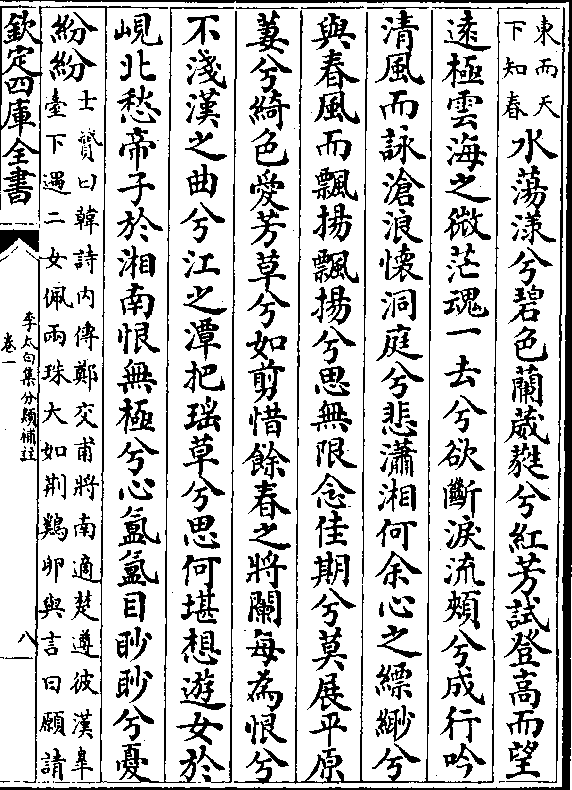 東而天
下知春
水蕩漾兮碧色蘭葳蕤兮紅芳試登高而望
遠極雲海之微茫魂一去兮欲斷淚流頰兮成行吟
清風而詠滄浪懷洞庭兮悲瀟湘何余心之縹緲兮
與春風而飄揚飄揚兮思無限念佳期兮莫展平原
萋兮綺色愛芳草兮如剪惜餘春之將闌每為恨兮
不淺漢之曲兮江之潭把瑶草兮思何堪想遊女於
峴北愁帝子於湘南恨無極兮心氳氳目眇眇兮憂
紛紛
士贇曰韓詩内傳鄭交甫將南適楚遵彼漢臯
臺下遇二女佩兩珠大如荆鷄卵與言曰願請
欽定四庫全書
李太白集分類補註
卷一
八